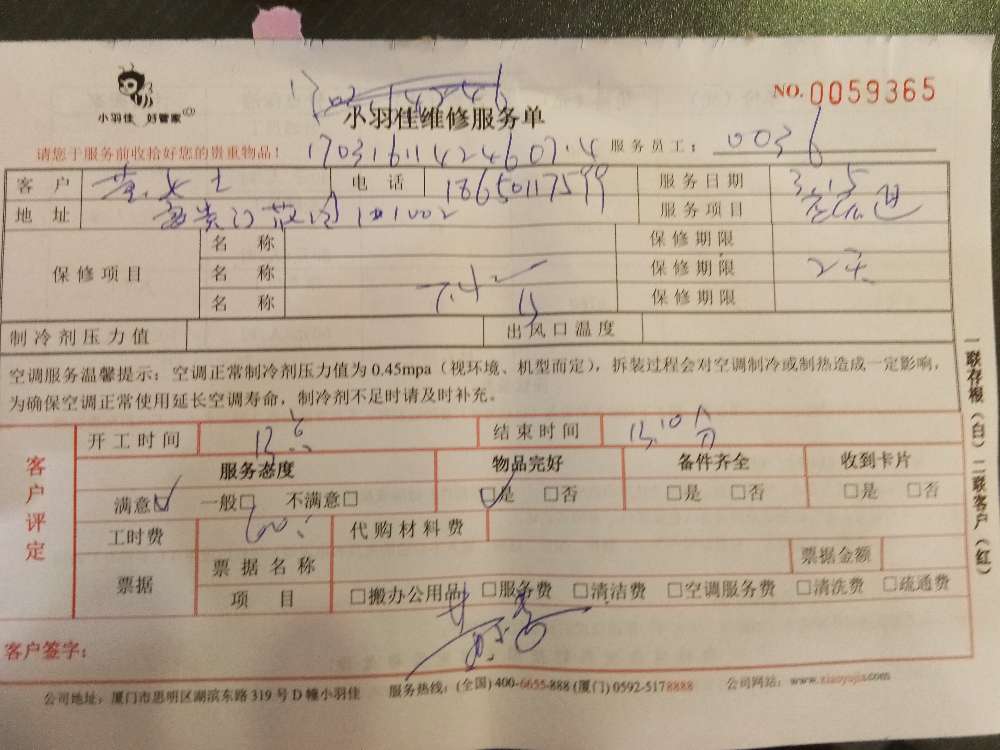 小羽佳 好管家
NO.0059365
小羽佳维修服务单
请您于服务前收拾好您的贵重物品!
170316114246074
服务员工: 0036
客户 黄女士 电话 18650117599 服务日期 3.15
地址 服务项目
保修项目 名称 保修期限
名称 保修期限 2天
名称 保修期限
制冷剂压力值 出风口温度
空调服务温馨提示:空调正常制冷剂压力值为0.45mpa(视环境、机型而定),拆装过程会对空调制冷或制热造成一定影响,
为确保空调正常使用延长空调寿命,制冷剂不足时请及时补充。
开工时间 结束时间
客户评定
服务态度 物品完好 备件齐全 收到卡片
满意☑ 一般□ 不满意□ ☑是 □否 □是 □否 □是 □否
工时费 60 代购材料费
票据 票据名称 票据金额
项目 □搬办公用品 □服务费 □清洁费 □空调服务费 □清洗费 □疏通费
客户签字:
一联存根(白)二联客户(红)
公司地址:厦门市思明区湖滨东路319号D幢小羽佳 服务热线:(全国)400-6655-888(厦门)0592-5178888 公司网站:www.xiaoyujia.com